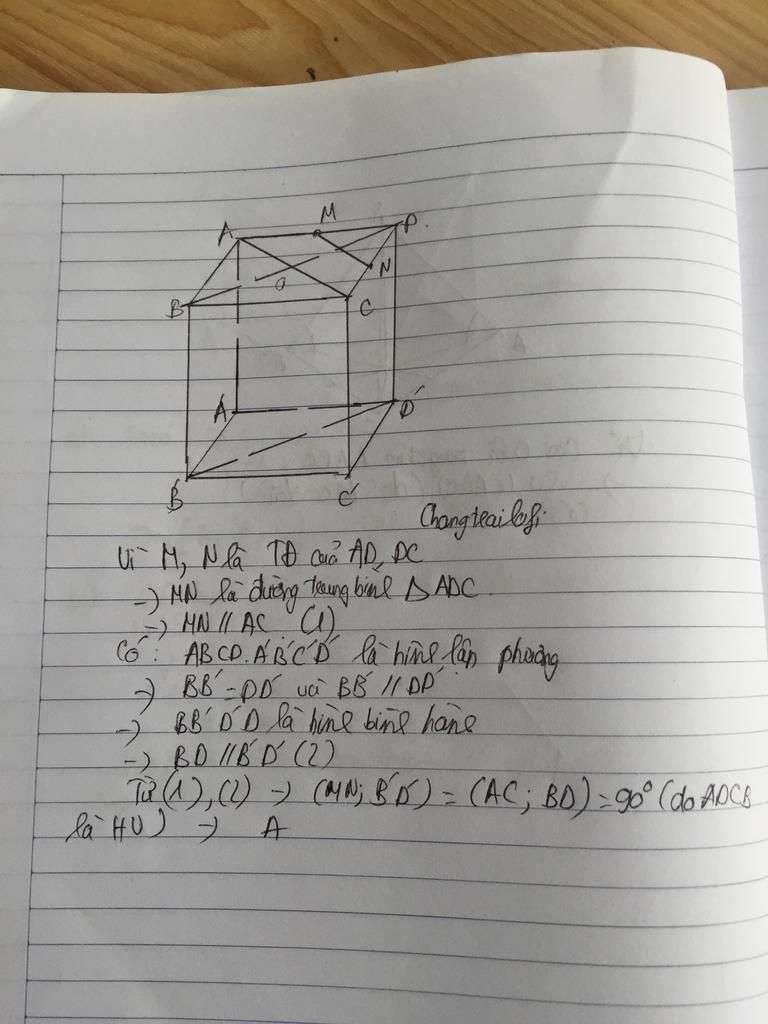 A M D
N
B O C
A' D'
B' C'
Changtrailofi
Vì M, N là TĐ của AD, DC
→ MN là đường trung bình Δ ADC.
→ MN // AC (1)
Có: ABCD.A'B'C'D' là hình lập phương
→ BB' = DD' và BB' // DD'
→ BB'D'D là hình bình hành
→ BD // B'D' (2)
Từ (1), (2) → (MN; B'D') = (AC; BD) = 90° (do ADCB
là HV) → A